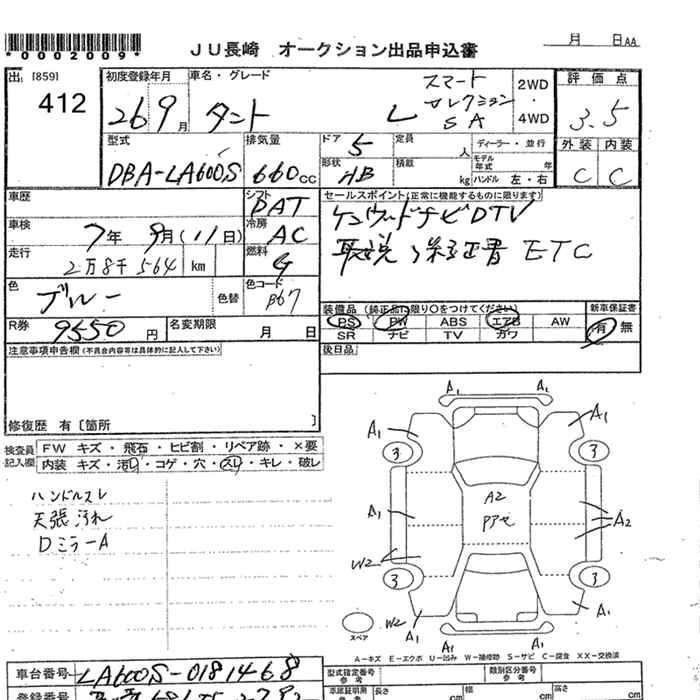 *0002009*
JU長崎 オークション出品申込書
月 日AA
出 [859] 412
初度登録年月 26 9月
車名・グレード タント L スマートセレクションSA
2WD ・ 4WD
評価点 3.5
外装 C 内装 C
型式 DBA-LA600S
排気量 660cc
ドア 5
定員 人
形状 HB
積載 kg
ディーラー・並行
モデル年式 年
ハンドル 左・右
車歴
シフト DAT
車検 7年 9月(11日)
冷房 AC
走行 2万8千564 km
燃料 G
色 ブルー 色替
色コード B67
セールスポイント(正常に機能するものに限ります)
ケンウッドナビDTV
取説、保証書 ETC
装備品 (純正品に限り○をつけてください)
PS PW ABS エアB AW
SR ナビ TV カワ
新車保証書 有 無
R券 9550円
名変期限 月 日
後日品
注意事項申告欄(不具合内容等は具体的に記入して下さい)
修復歴 有〔箇所 〕
検査員記入欄
FW キズ・飛石・ヒビ割・リペア跡・×要
内装 キズ・汚れ・コゲ・穴・スレ・キレ・破レ
ハンドルスレ
天張汚れ
DミラーA
A1 A1
A1 A1
3 3
A2
Pアせ
A1 A2
W2
3 3
W2 A1 A1
A1 A1
スペア
A-キズ E-エクボ U-凹み W-補修跡 S-サビ C-腐食 XX-交換済
車台番号 LA600S-0181468
登録番号
型式指定番号 参考
類別区分番号 参考
車庫証明用 参考 長さ cm 幅 cm 高さ cm